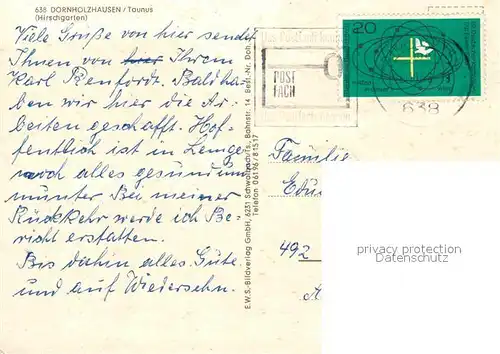 638 DORNHOLZHAUSEN / Taunus
(Hirschgarten)
Viele Grüße von hier sendet
Ihnen von hier Ihrem
Karl Renfordt. Bald ha-
ben wir hier die Ar-
beiten geschafft. Hof-
fentlich ist in Lemgo
noch alles gesund und
munter Bei meiner
Rückkehr werde ich Be-
richt erstatten.
Bis dahin alles Gute
und auf Wiedersehn.
E.W.S.-Bildverlag GmbH, 6231 Schwalbach/Ts., Bahnstr. 14 Best.-Nr. Doh.
Telefon 06196/81517
POST
FACH
20
638
Familie
492
privacy protection
Datenschutz